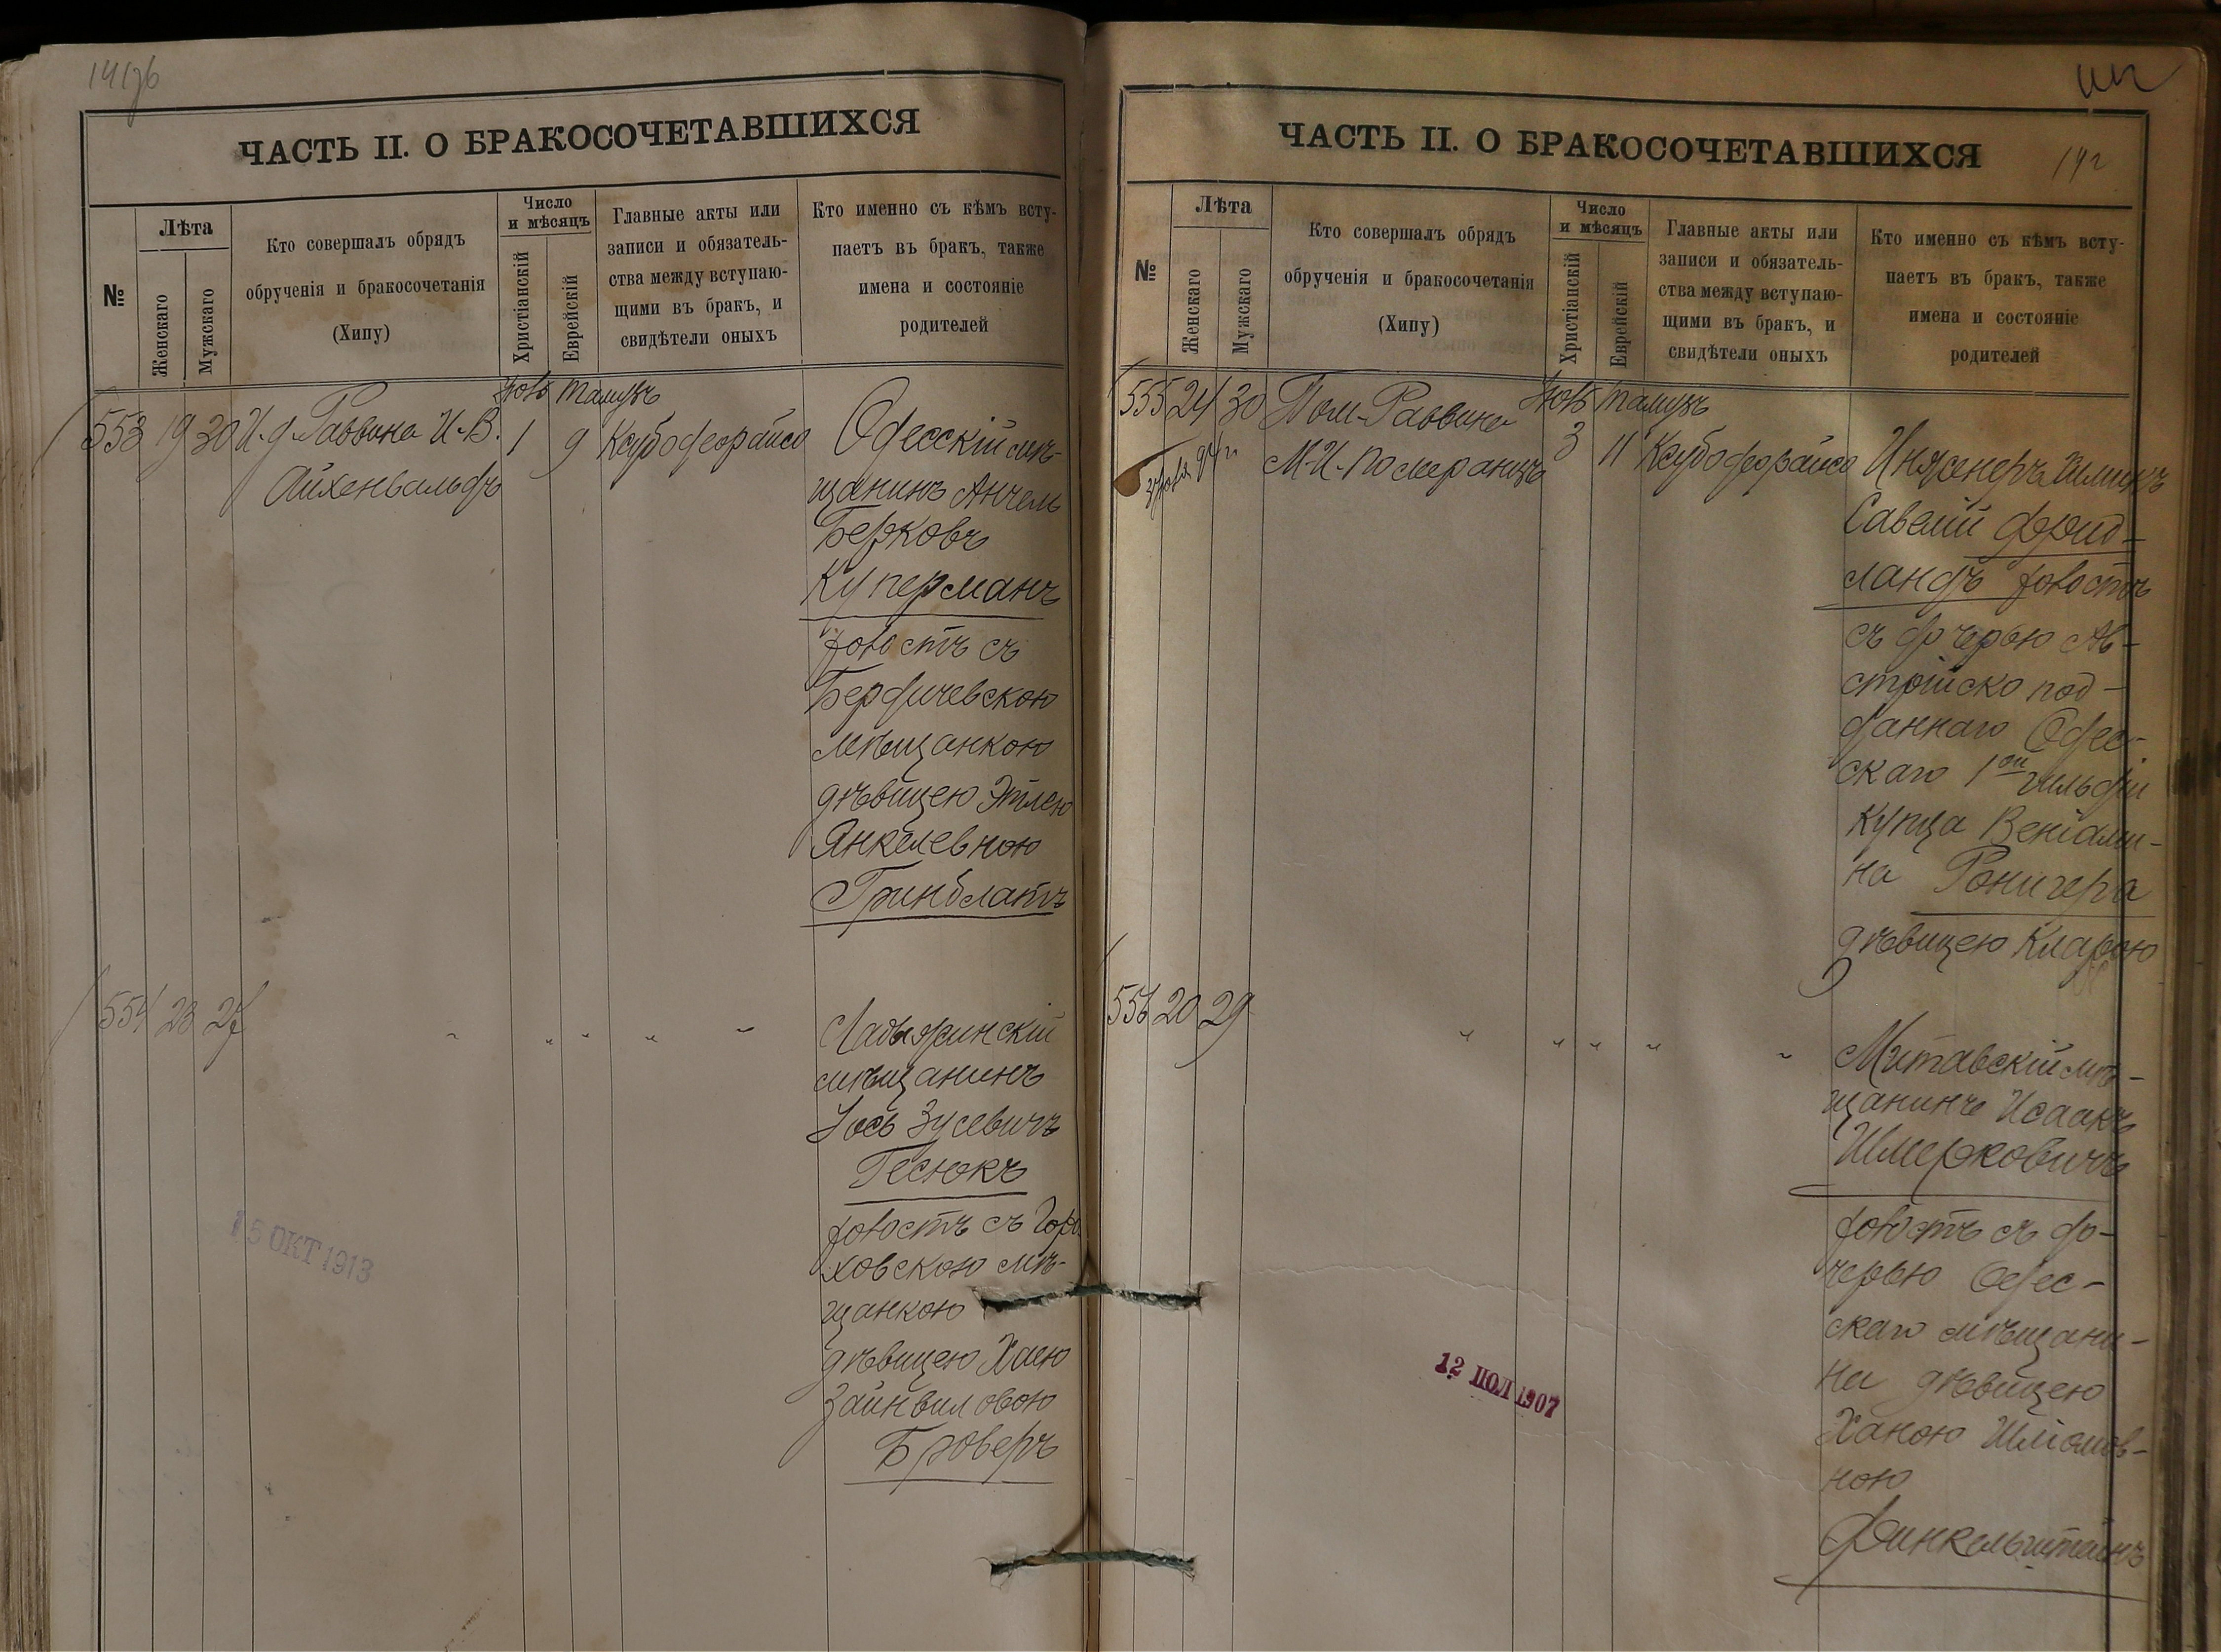 ЧАСТЬ II. О БРАКОСОЧЕТАВШИХСЯ
№
Лѣта
Женскаго
Мужскаго
Кто совершалъ обрядъ
обрученія и бракосочетанія
(Хипу)
Число
и мѣсяцъ
Христіанскій
Еврейскій
Главные акты или
записи и обязатель-
ства между вступаю-
щими въ бракъ, и
свидѣтели оныхъ
Кто именно съ кѣмъ всту-
паетъ въ бракъ, также
имена и состояніе
родителей
Тамузъ
553 19 30 И. д. Раввина И. В. 1 9
Айхенвальдъ
Одесскій мѣ-
щанинъ Анчель
Берковъ
Куперманъ
холостъ съ
Бердичевскою
мѣщанкою
дѣвицею Этлею
Янкелевною
Гринблатъ
554 23 27 " " " " "
мѣщанинъ
Іось Зусевичъ
Гесюкъ
холостъ съ Горо
ховскою мѣ-
щанкою
дѣвицею Хаею
Зайнвиловою
Броверъ
15 ОКТ 1913
ЧАСТЬ II. О БРАКОСОЧЕТАВШИХСЯ
142
№
Лѣта
Женскаго
Мужскаго
Кто совершалъ обрядъ
обрученія и бракосочетанія
(Хипу)
Число
и мѣсяцъ
Христіанскій
Еврейскій
Главные акты или
записи и обязатель-
ства между вступаю-
щими въ бракъ, и
свидѣтели оныхъ
Кто именно съ кѣмъ всту-
паетъ въ бракъ, также
имена и состояніе
родителей
Тамузъ
555 24 30 Пом. Раввина 3 11
М. И. Померанцъ
Инженеръ Химикъ
Савелій Фрид-
ландъ холостъ
съ дочерью Ав-
стрійско под-
даннаго Одес-
скаго 1ой гильдіи
купца Веніами-
на Роничера
дѣвицею Кларою
556 20 29 " " " " "
Митавскій мѣ-
щанинъ Исаакъ
Шмерковичъ
холостъ съ до-
черью Одес-
скаго мѣщани-
на дѣвицею
Ханою Шліомов-
ною
Финкельштейнъ
12 ІЮЛ 1907